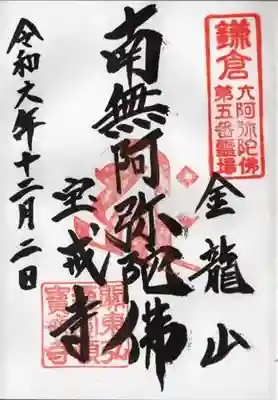 鎌倉
六阿弥陀佛
第五番霊場
金龍山
南無阿弥陀佛
宝戒寺
令和元年十二月二日